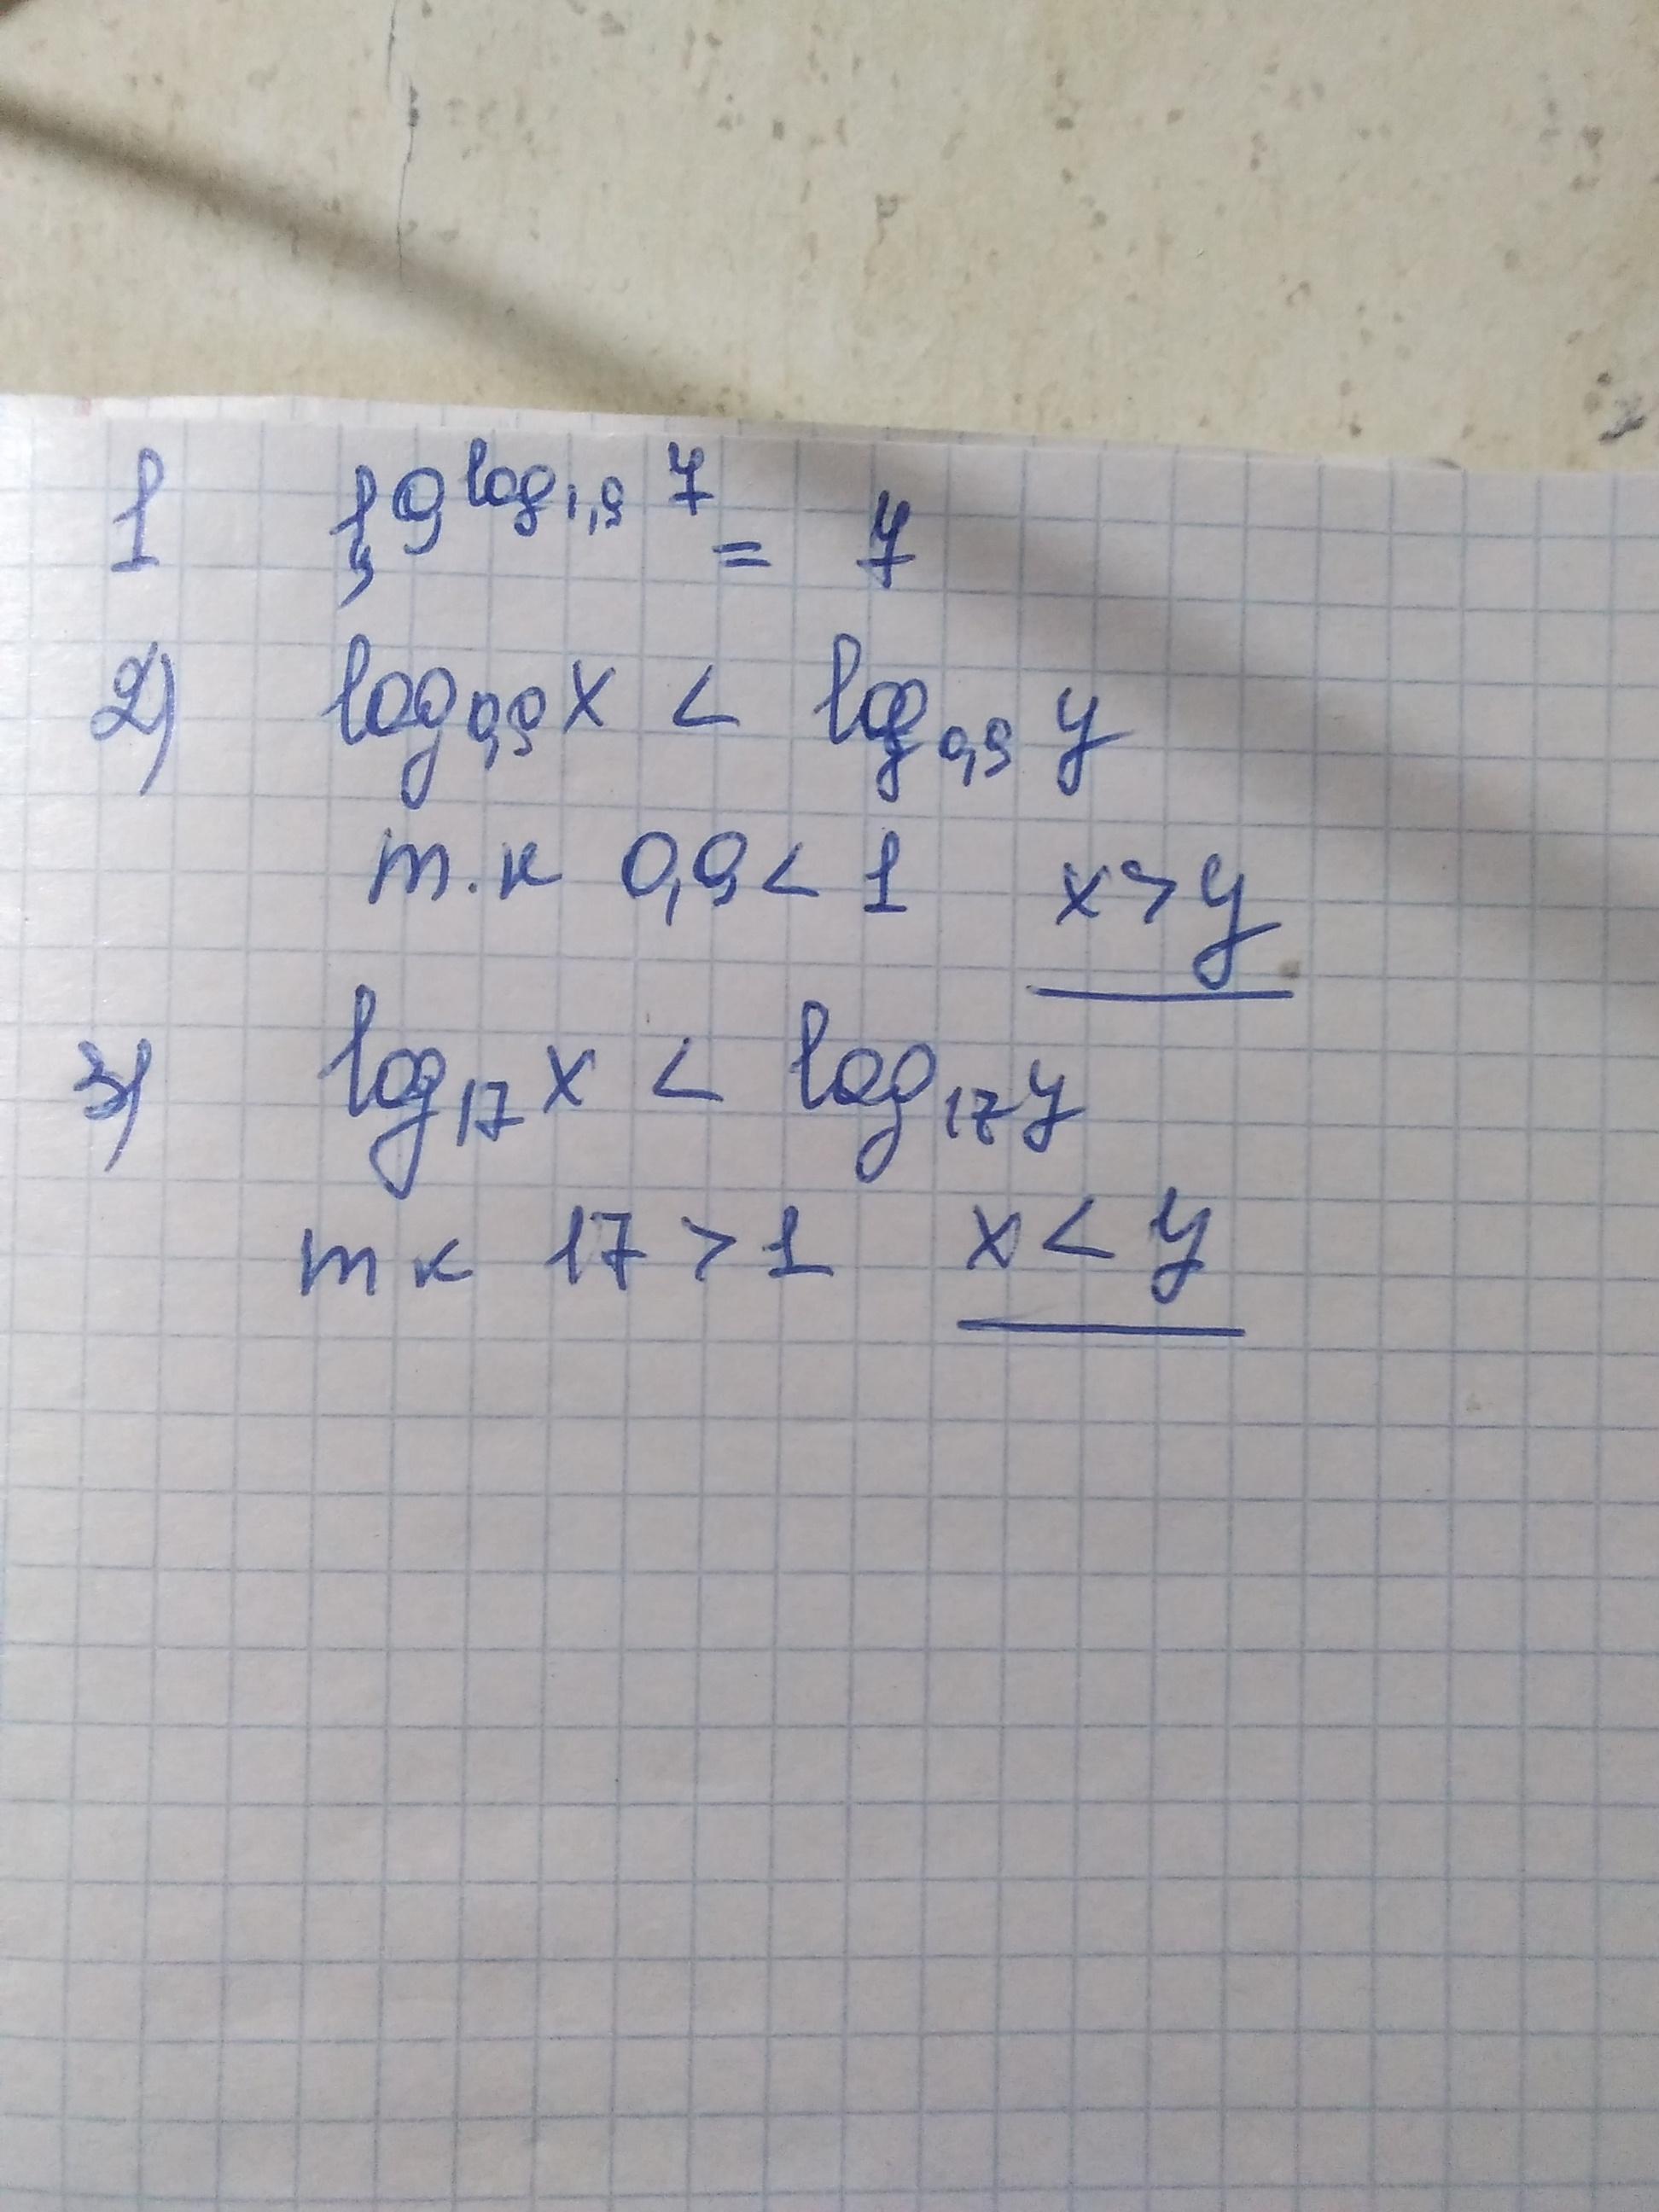 1 1,9^log_1,9 7 = 7
2) log_0,9 x < log_0,9 y
т.к 0,9 < 1 x > y
3) log_17 x < log_17 y
т к 17 > 1 x < y